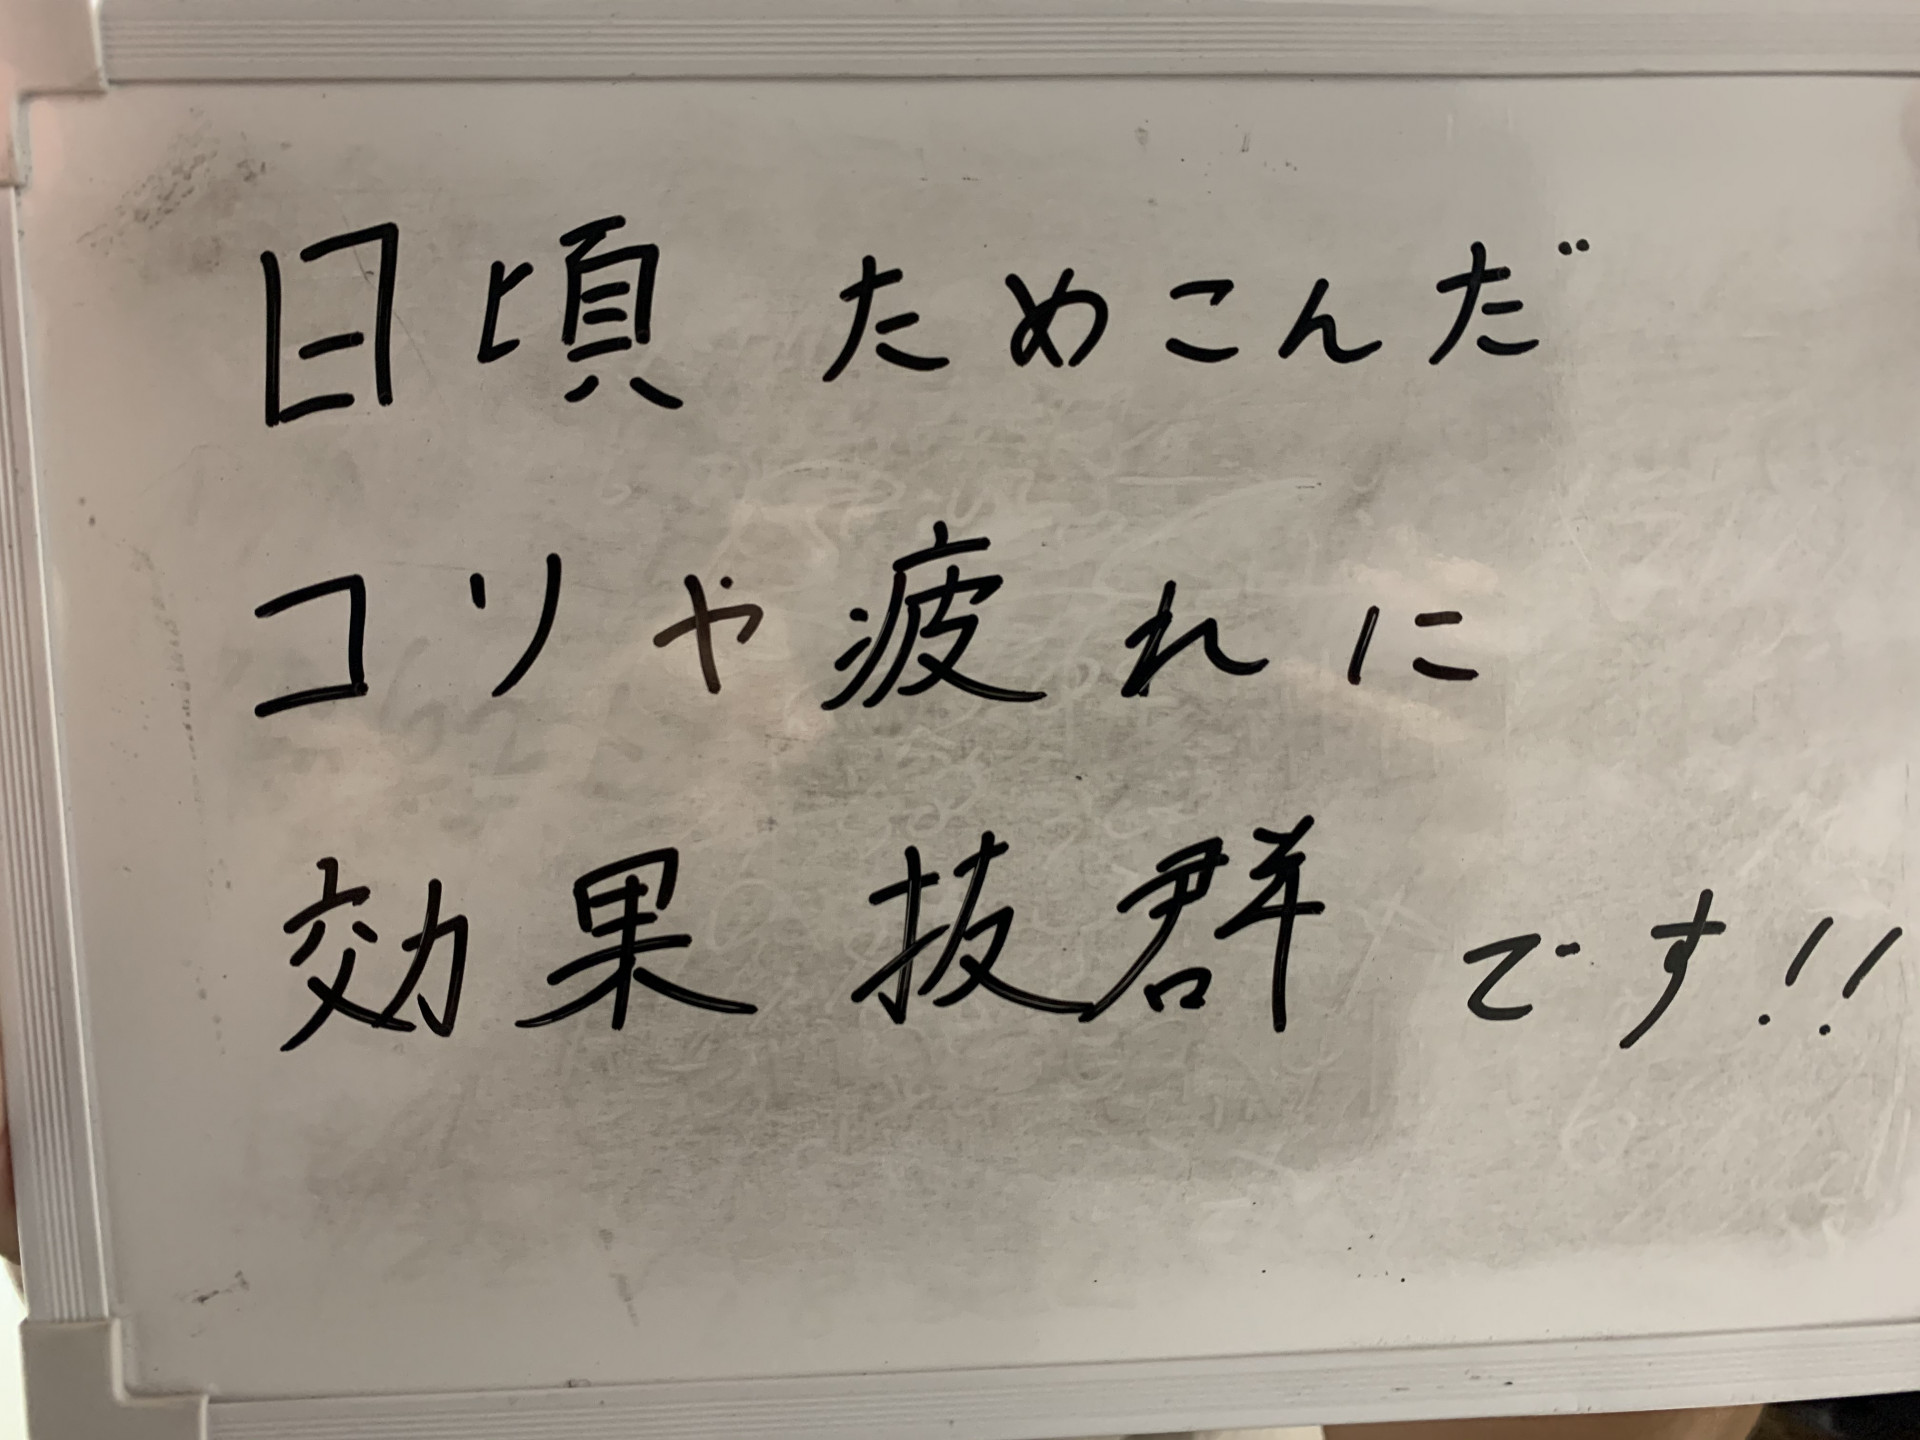 日頃 ためこんだ
コリや疲れに
効果 抜群です!!